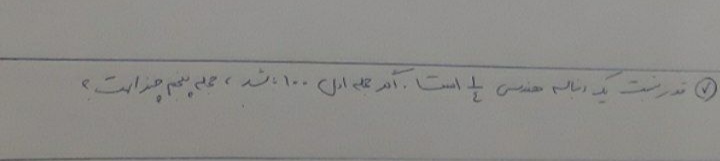 ۷) قدر نسبت یک دنباله هندسی ۱/۴ است. اگر جمله اول ۱۰۰ باشد، جمله پنجم چند است؟